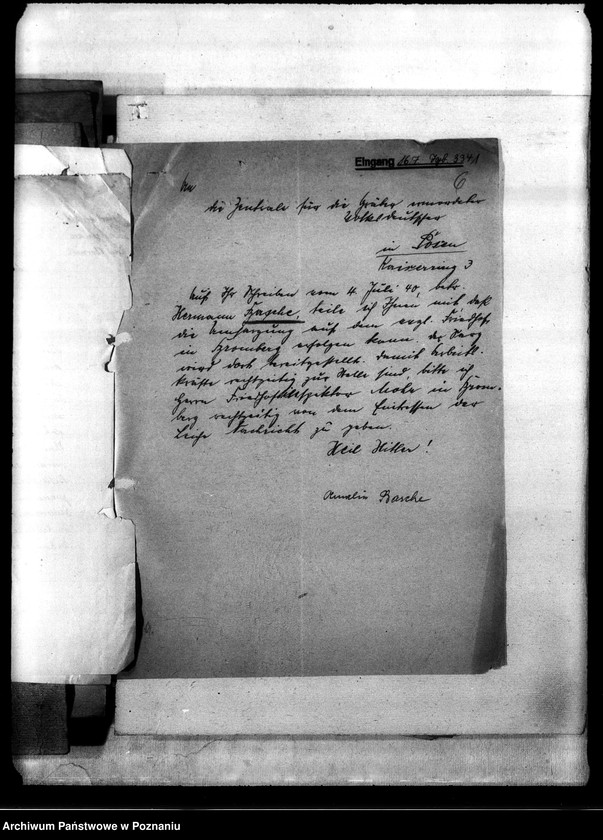 Eingang 16.7. Tgb. 3341
6
An
die Zentrale für die Gräber ermordeter
Volksdeutscher
in Posen
Kaiserring 3
Auf Ihr Schreiben vom 4. Juli 40, betr.
Hermann Basche, teile ich Ihnen mit daß
die Umsargung auf dem evgl. Friedhof
in Bromberg erfolgen kann. Der Sarg
wird dort bereitgestellt. Damit Arbeits-
kräfte rechtzeitig zur Stelle sind, bitte ich
Herrn Friedhofsinspektor in Brom-
berg rechtzeitig von dem Eintreffen der
Leiche Nachricht zu geben.
Heil Hitler!
Amalie Basche
Archiwum Państwowe w Poznaniu